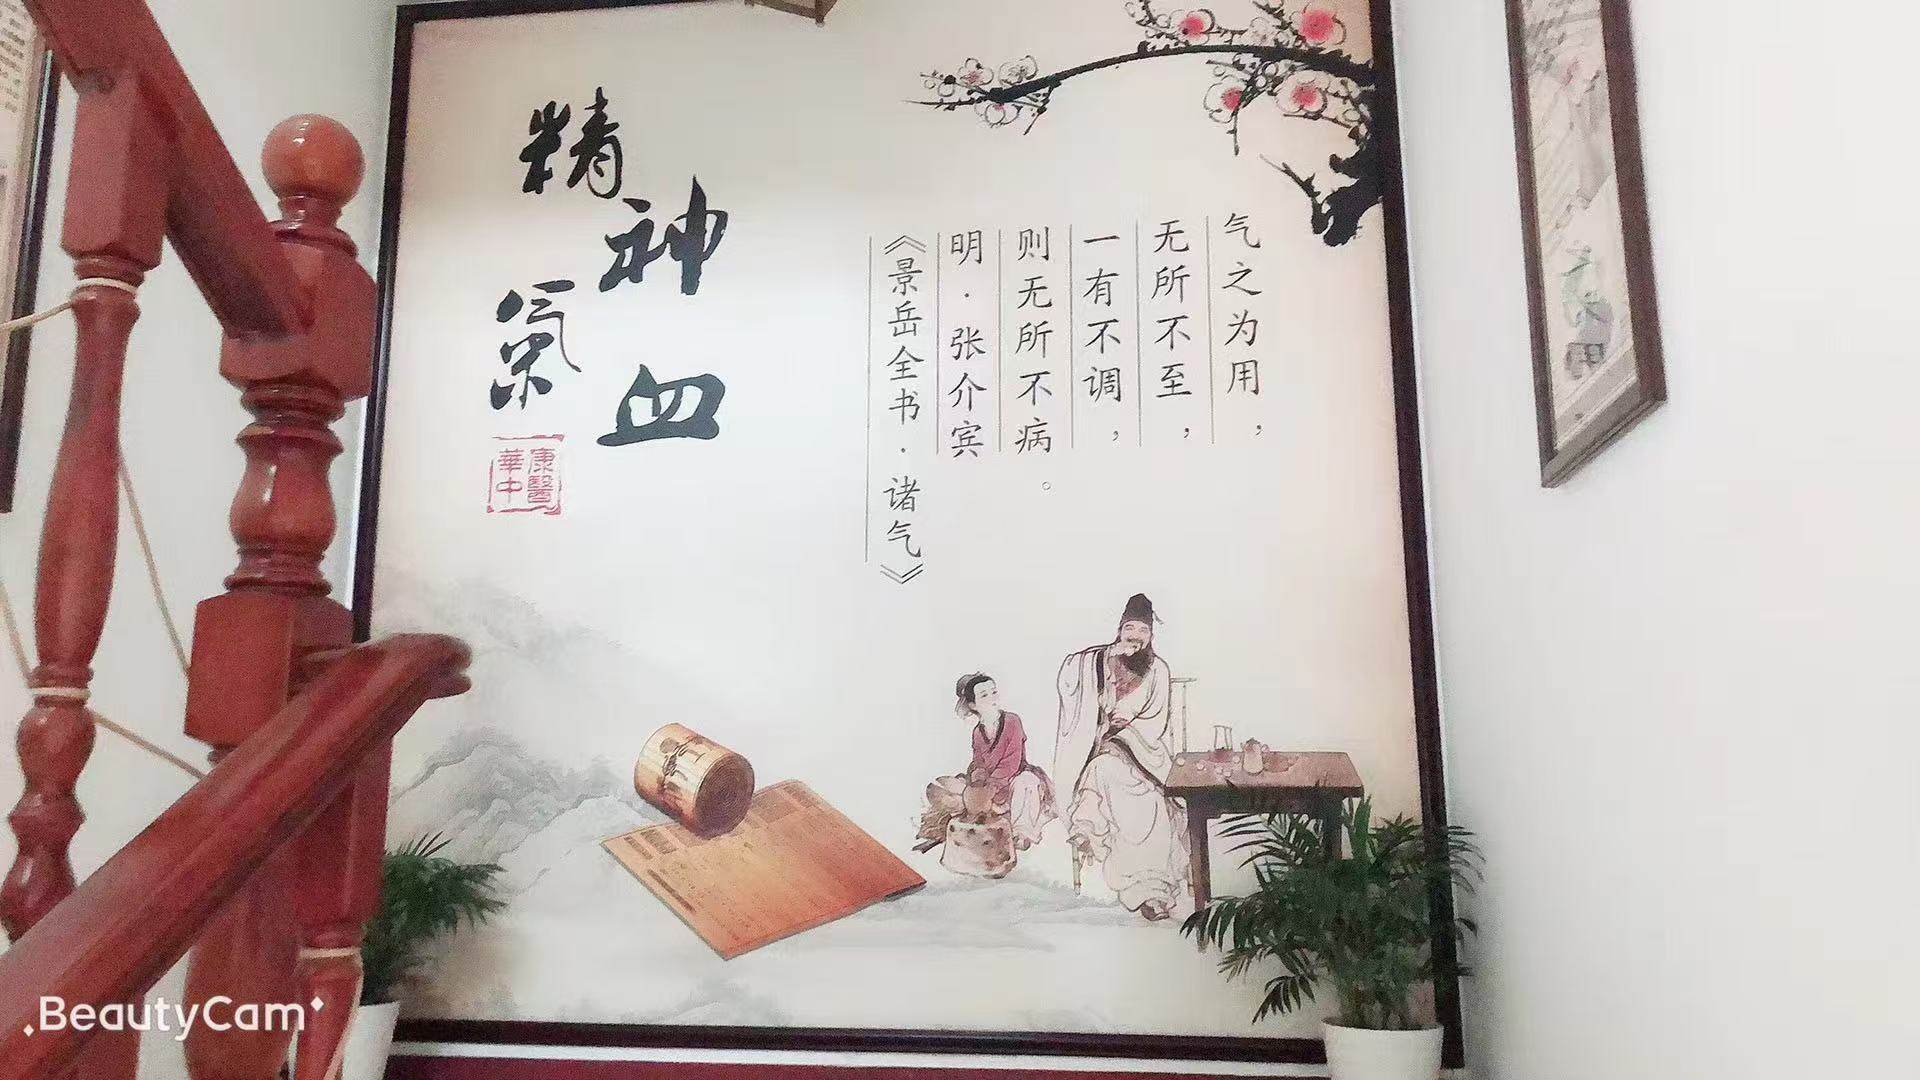 精
神
氣
血
康醫
華中
气之为用，
无所不至，
一有不调，
则无所不病。
明·张介宾
《景岳全书·诸气》
BeautyCam